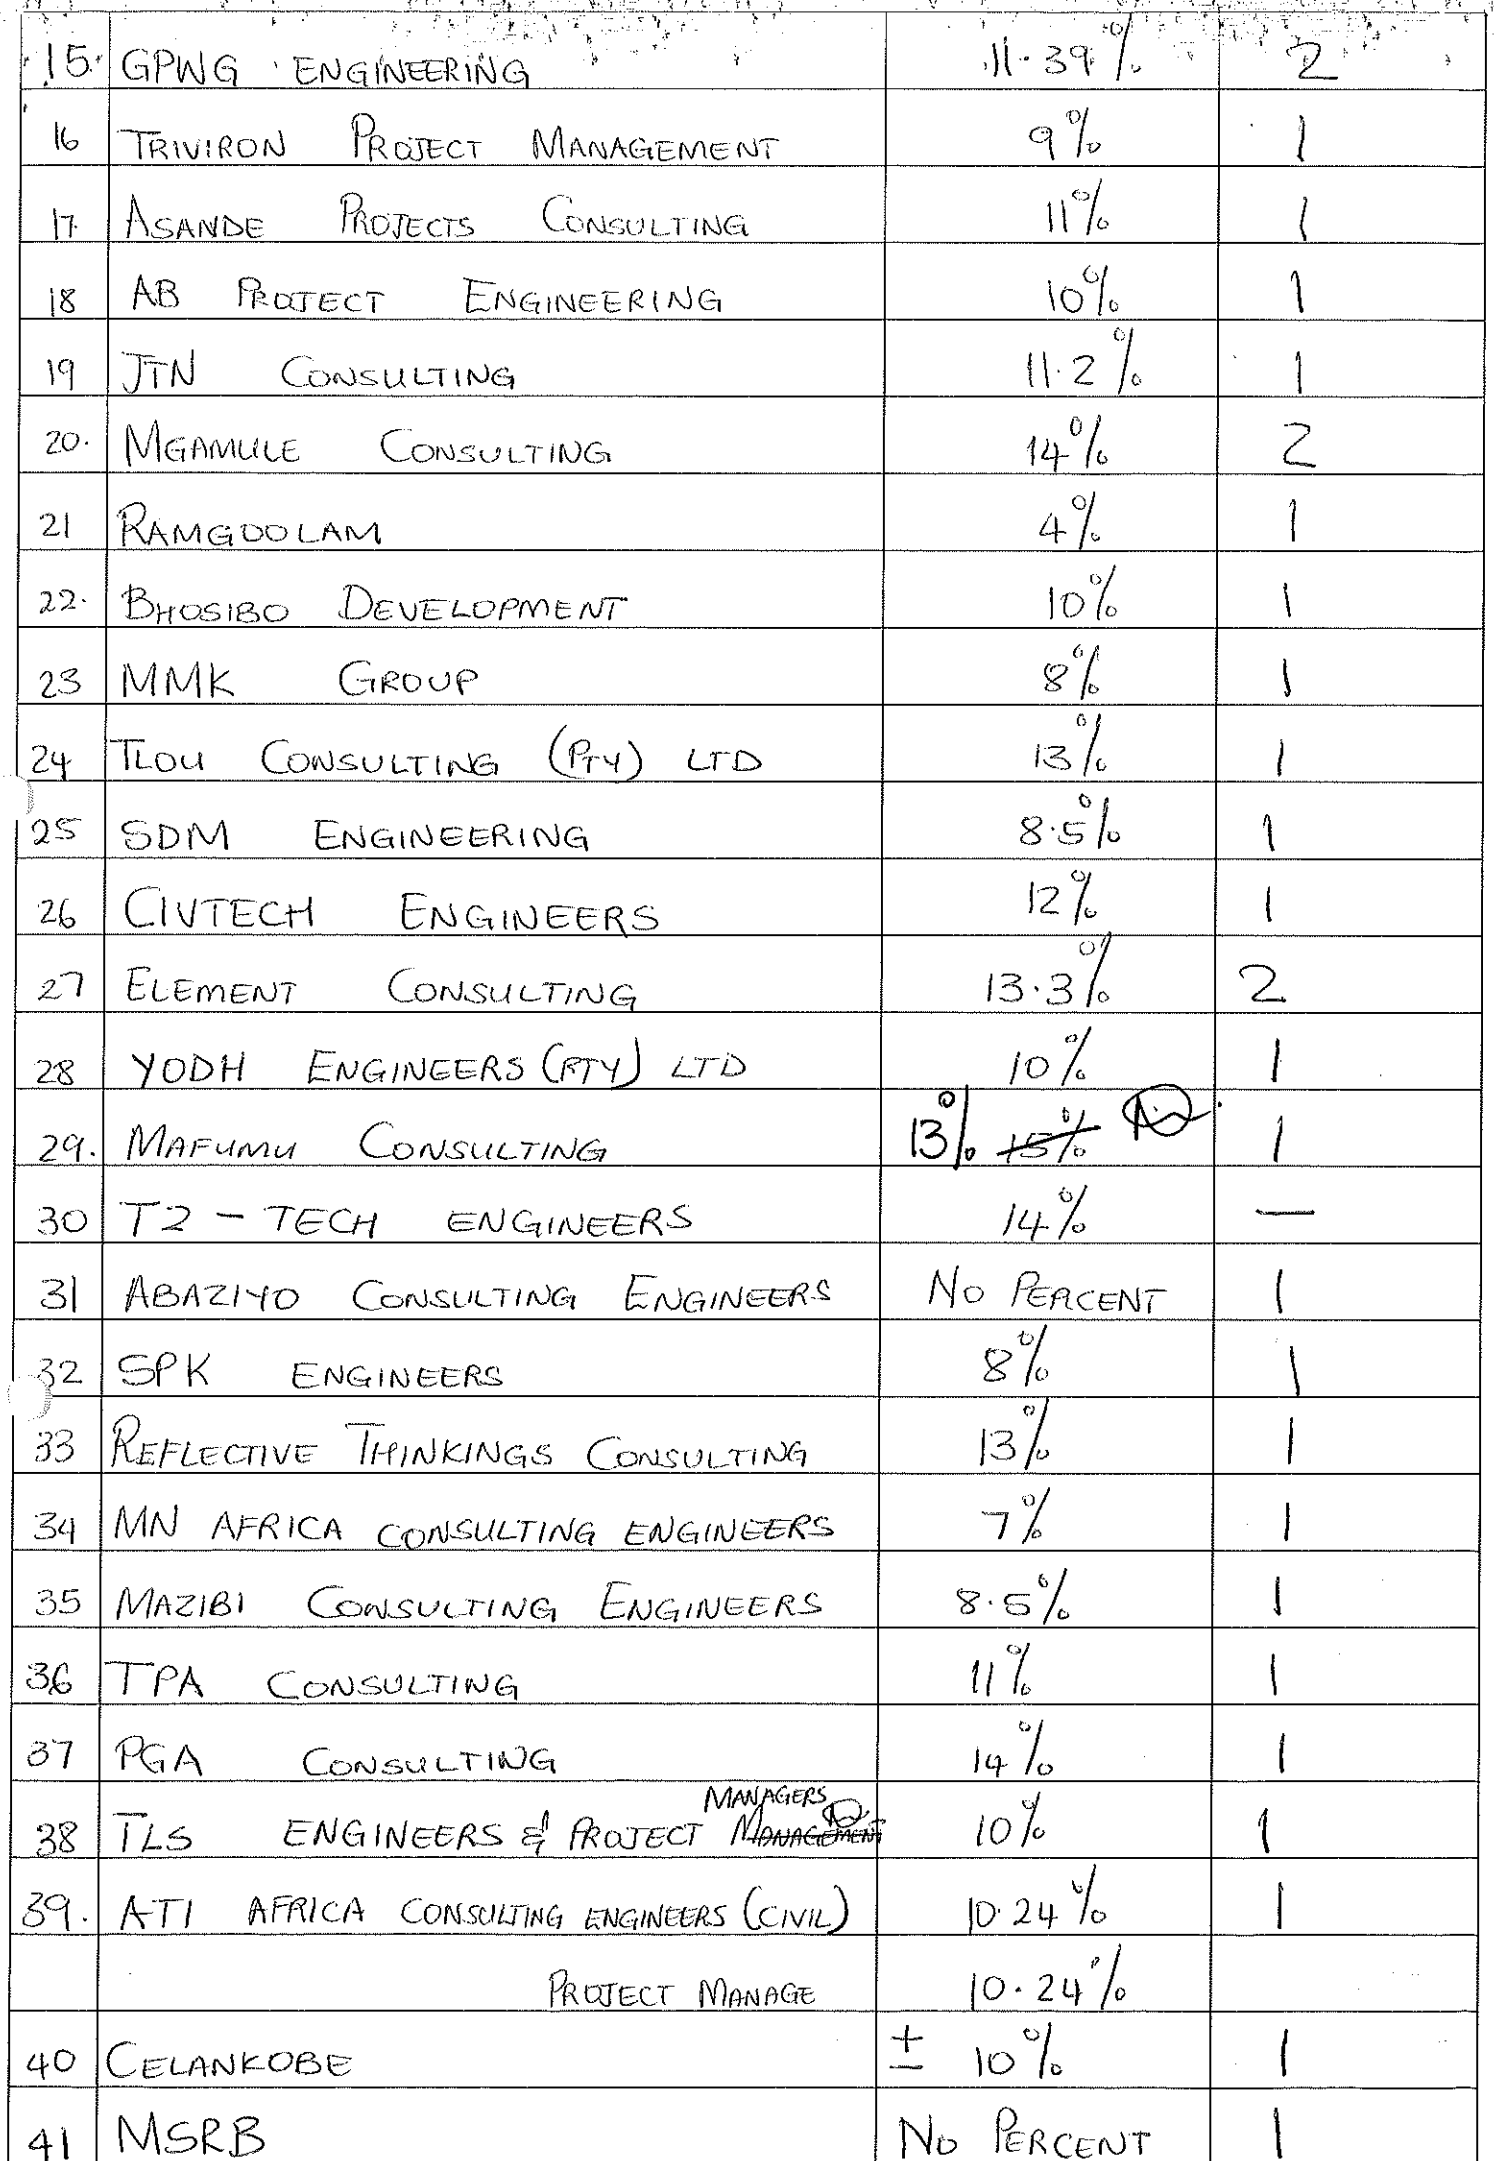 15. GPWG ENGINEERING 11.39% 2
16 TRIVIRON PROJECT MANAGEMENT 9% 1
17. ASANDE PROJECTS CONSULTING 11% 1
18 AB PROJECT ENGINEERING 10% 1
19 JTN CONSULTING 11.2% 1
20. MGAMULE CONSULTING 14% 2
21 RAMGOOLAM 4% 1
22. BHOSIBO DEVELOPMENT 10% 1
23 MMK GROUP 8% 1
24 TLOU CONSULTING (PTY) LTD 13% 1
25 SDM ENGINEERING 8.5% 1
26 CIVTECH ENGINEERS 12% 1
27 ELEMENT CONSULTING 13.3% 2
28 YODH ENGINEERS (PTY) LTD 10% 1
29. MAFUMU CONSULTING 13% 15% 1
30 T2-TECH ENGINEERS 14% —
31 ABAZIYO CONSULTING ENGINEERS NO PERCENT 1
32 SPK ENGINEERS 8% 1
33 REFLECTIVE THINKINGS CONSULTING 13% 1
34 MN AFRICA CONSULTING ENGINEERS 7% 1
35 MAZIBI CONSULTING ENGINEERS 8.5% 1
36 TPA CONSULTING 11% 1
37 PGA CONSULTING 14% 1
MANAGERS
38 TLS ENGINEERS & PROJECT MANAGEMENT 10% 1
39. ATI AFRICA CONSULTING ENGINEERS (CIVIL) 10.24% 1
PROJECT MANAGE 10.24%
40 CELANKOBE ± 10% 1
41 MSRB NO PERCENT 1